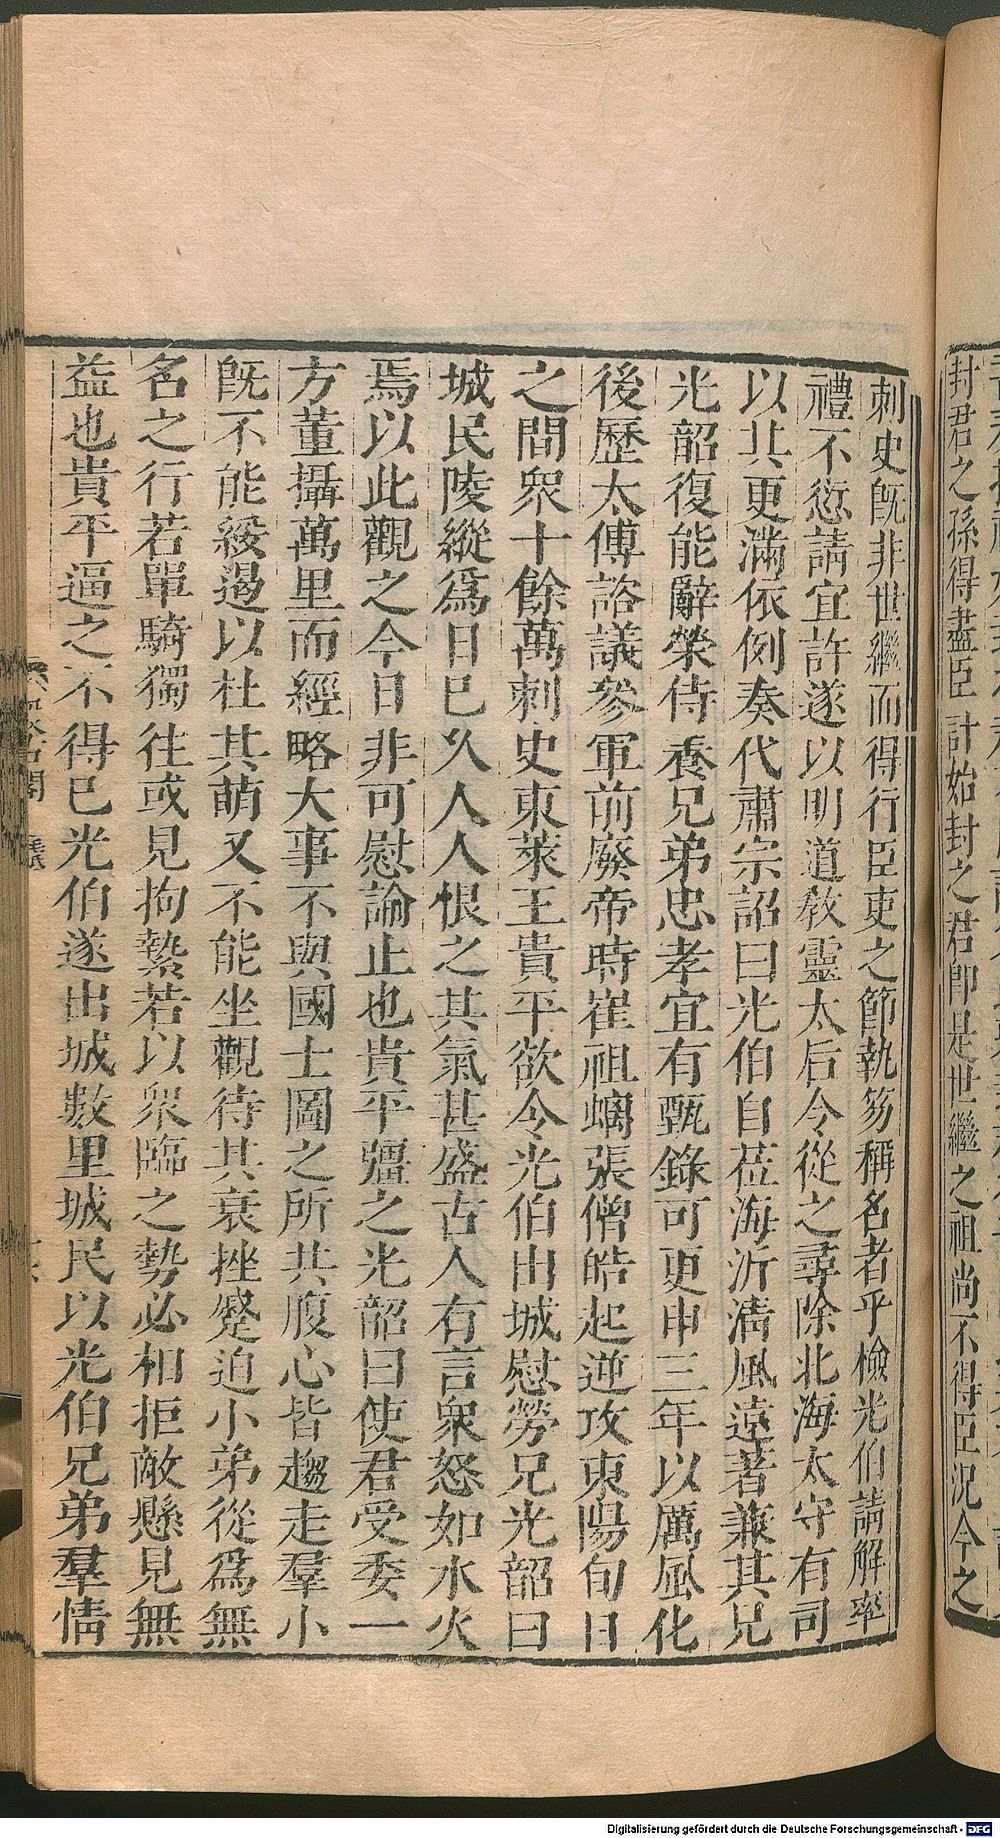 封君之孫得盡臣計始封之君即是世繼之祖尚不得臣況今之
刺史旣非世繼而得行臣吏之節執笏稱名者乎檢光伯請解率
禮不愆請宜許遂以明道敎靈太后令從之尋除北海太守有司
以其更滿依例奏代肅宗詔曰光伯自莅海沂淸風遠著兼其兄
光韶復能辭榮侍養兄弟忠孝宜有甄錄可更申三年以厲風化
後歷太傅諮議參軍前廢帝時崔祖螭張僧皓起逆攻東陽旬日
之間衆十餘萬刺史東萊王貴平欲令光伯出城慰勞兄光韶曰
城民陵縱爲日已久人人恨之其氣甚盛古人有言衆怒如水火
焉以此觀之今日非可慰論止也貴平彊之光韶曰使君受委一
方董攝萬里而經略大事不與國士圖之所共腹心皆趨走羣小
旣不能綏遏以杜其萌又不能坐觀待其衰挫蹙迫小弟從爲無
名之行若單騎獨往或見拘縶若以衆臨之勢必相拒敵懸見無
益也貴平逼之不得已光伯遂出城數里城民以光伯兄弟羣情
Digitalisierung gefördert durch die Deutsche Forschungsgemeinschaft - DFG